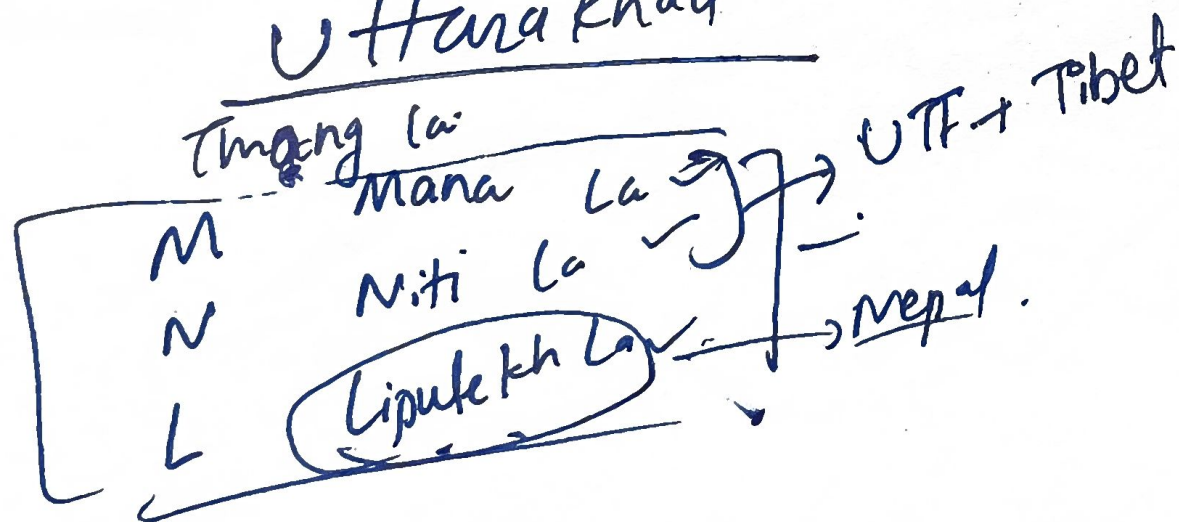 Uttarakhad
Thang la
M Mana La → UTF + Tibet
N Niti La
L Lipulekh La → Nepal.